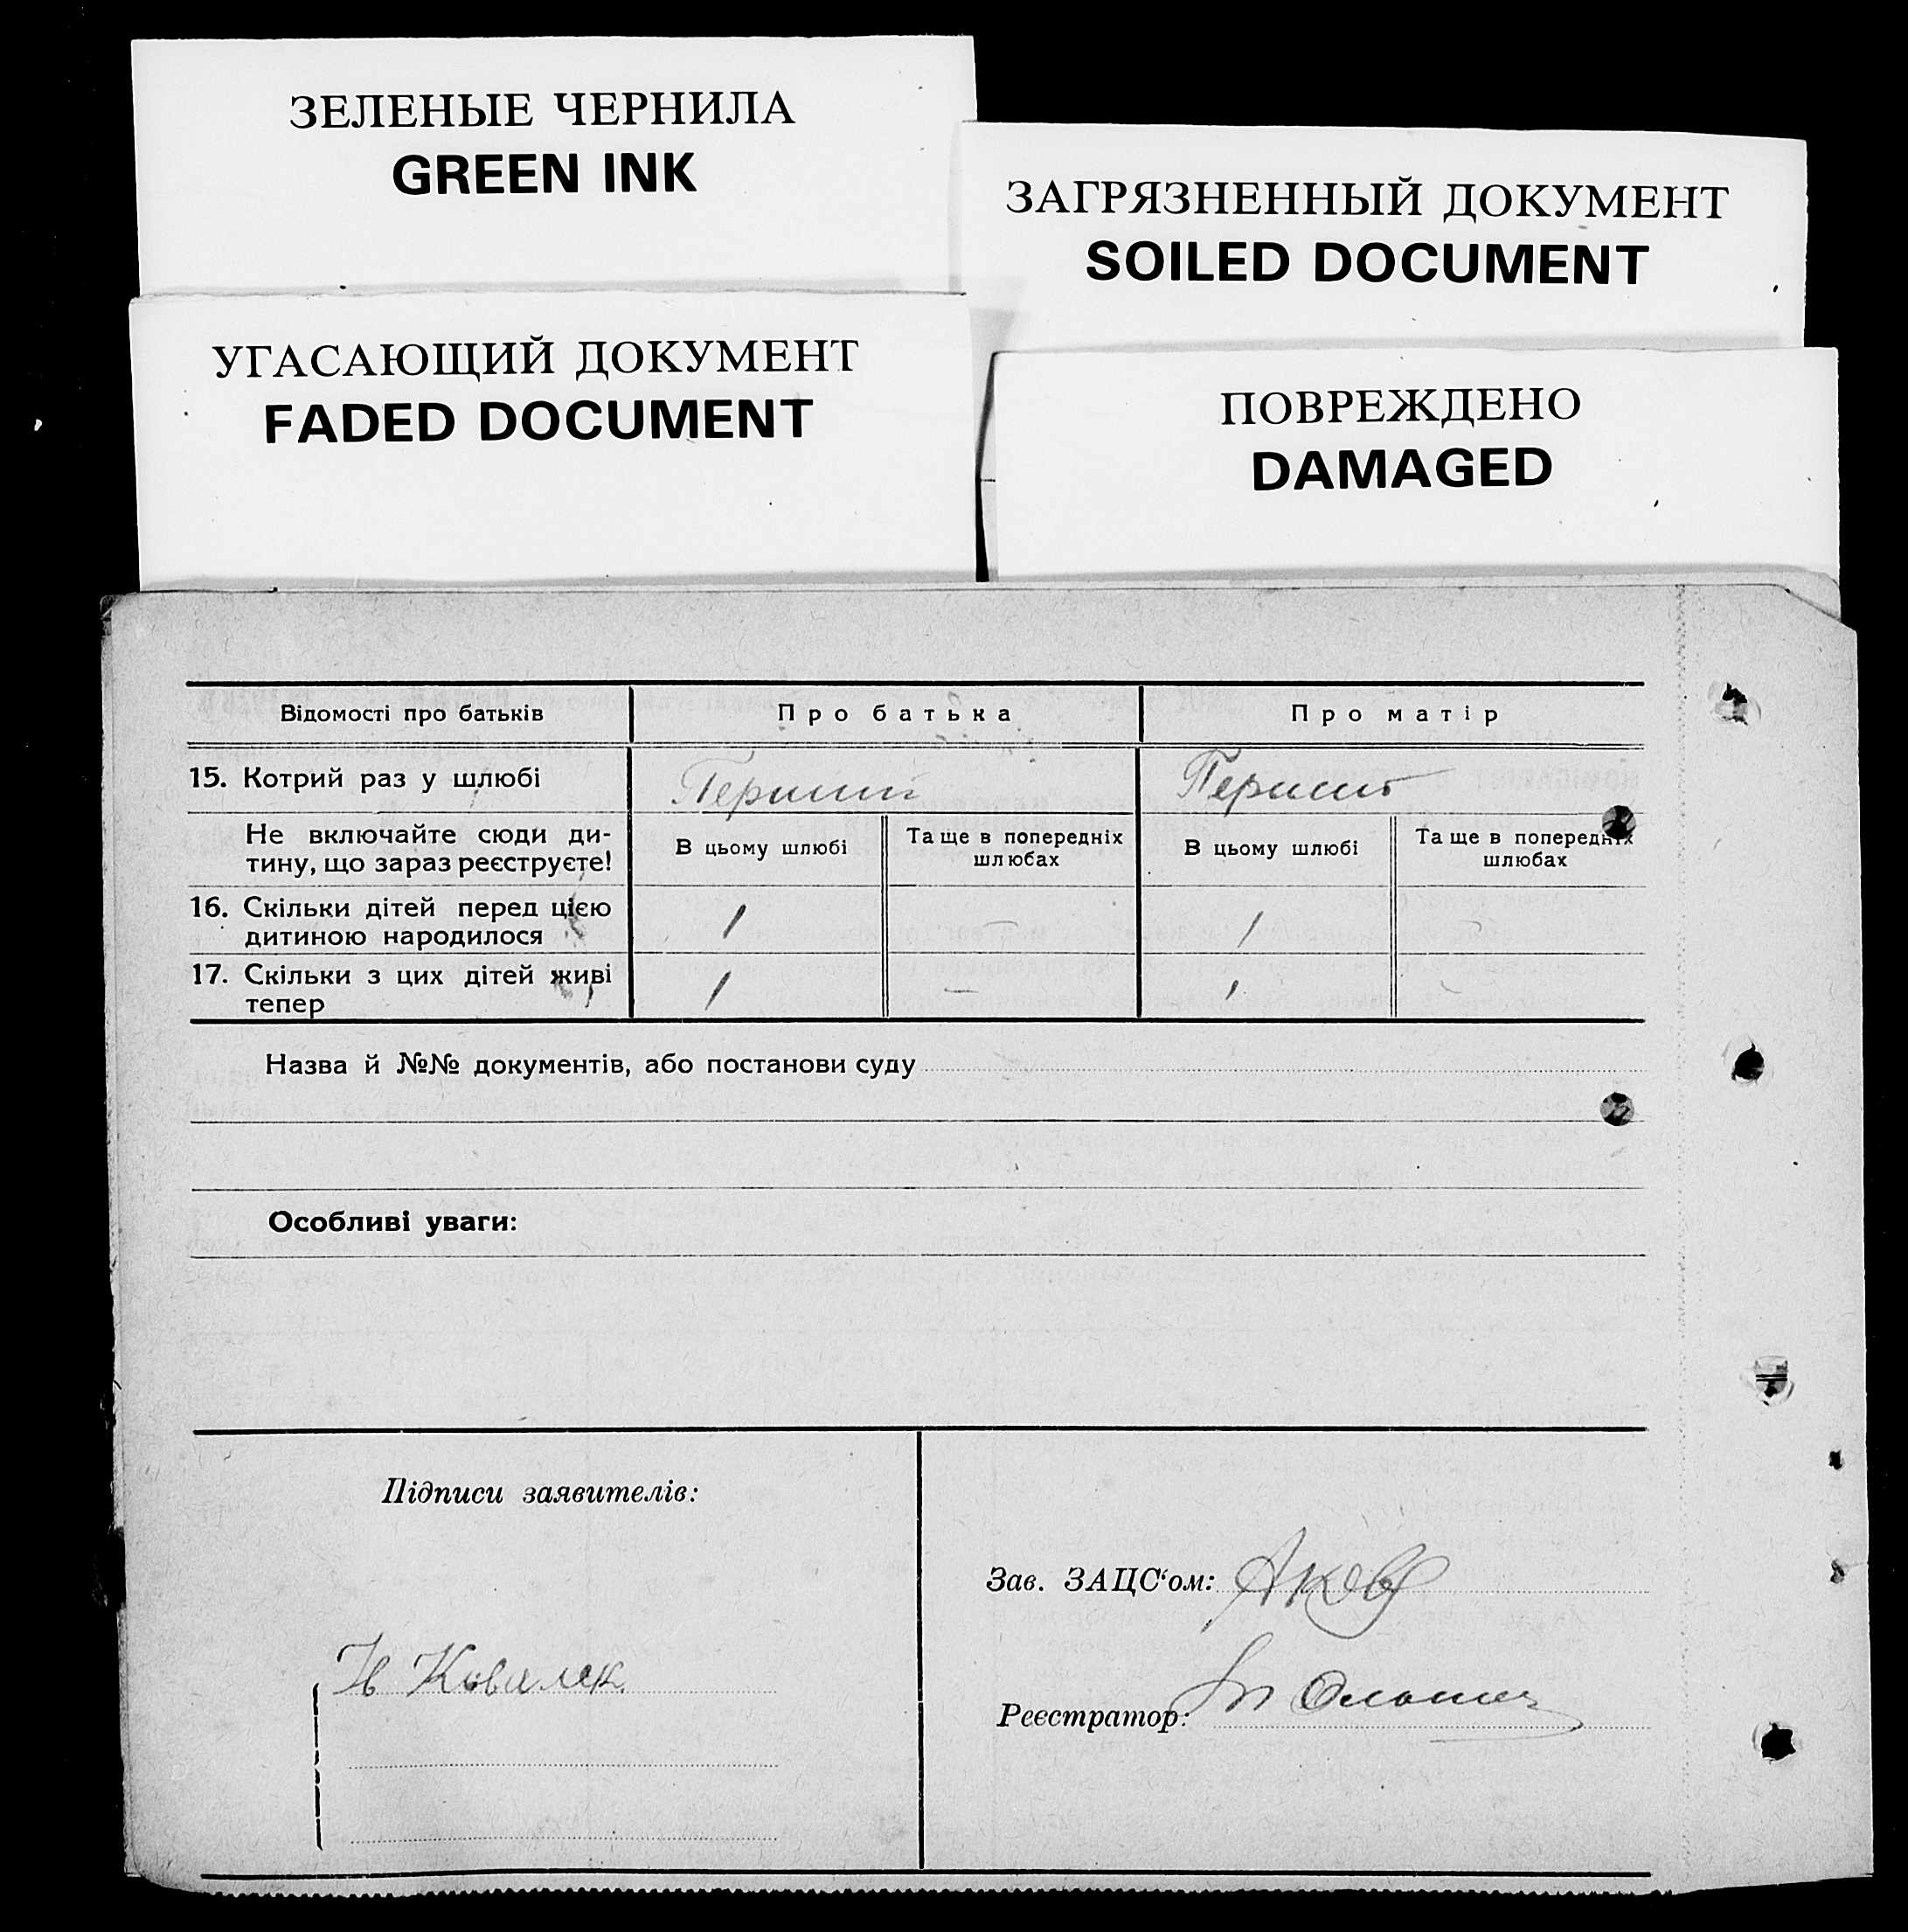 ЗЕЛЕНЫЕ ЧЕРНИЛА
GREEN INK
ЗАГРЯЗНЕННЫЙ ДОКУМЕНТ
SOILED DOCUMENT
УГАСАЮЩИЙ ДОКУМЕНТ
FADED DOCUMENT
ПОВРЕЖДЕНО
DAMAGED
Відомості про батьків Про батька Про матір
15. Котрий раз у шлюбі Перший
Не включайте сюди ди-
тину, що зараз реєструєте!
В цьому шлюбі
Та ще в попередніх
шлюбах
В цьому шлюбі
Та ще в попередніх
шлюбах
16. Скільки дітей перед цією
дитиною народилося
1 — 1 —
17. Скільки з цих дітей живі
тепер
1 — 1 —
Назва й №№ документів, або постанови суду
Особливі уваги:
Підписи заявителів:
Зав. ЗАЦС‘ом:
Реєстратор: